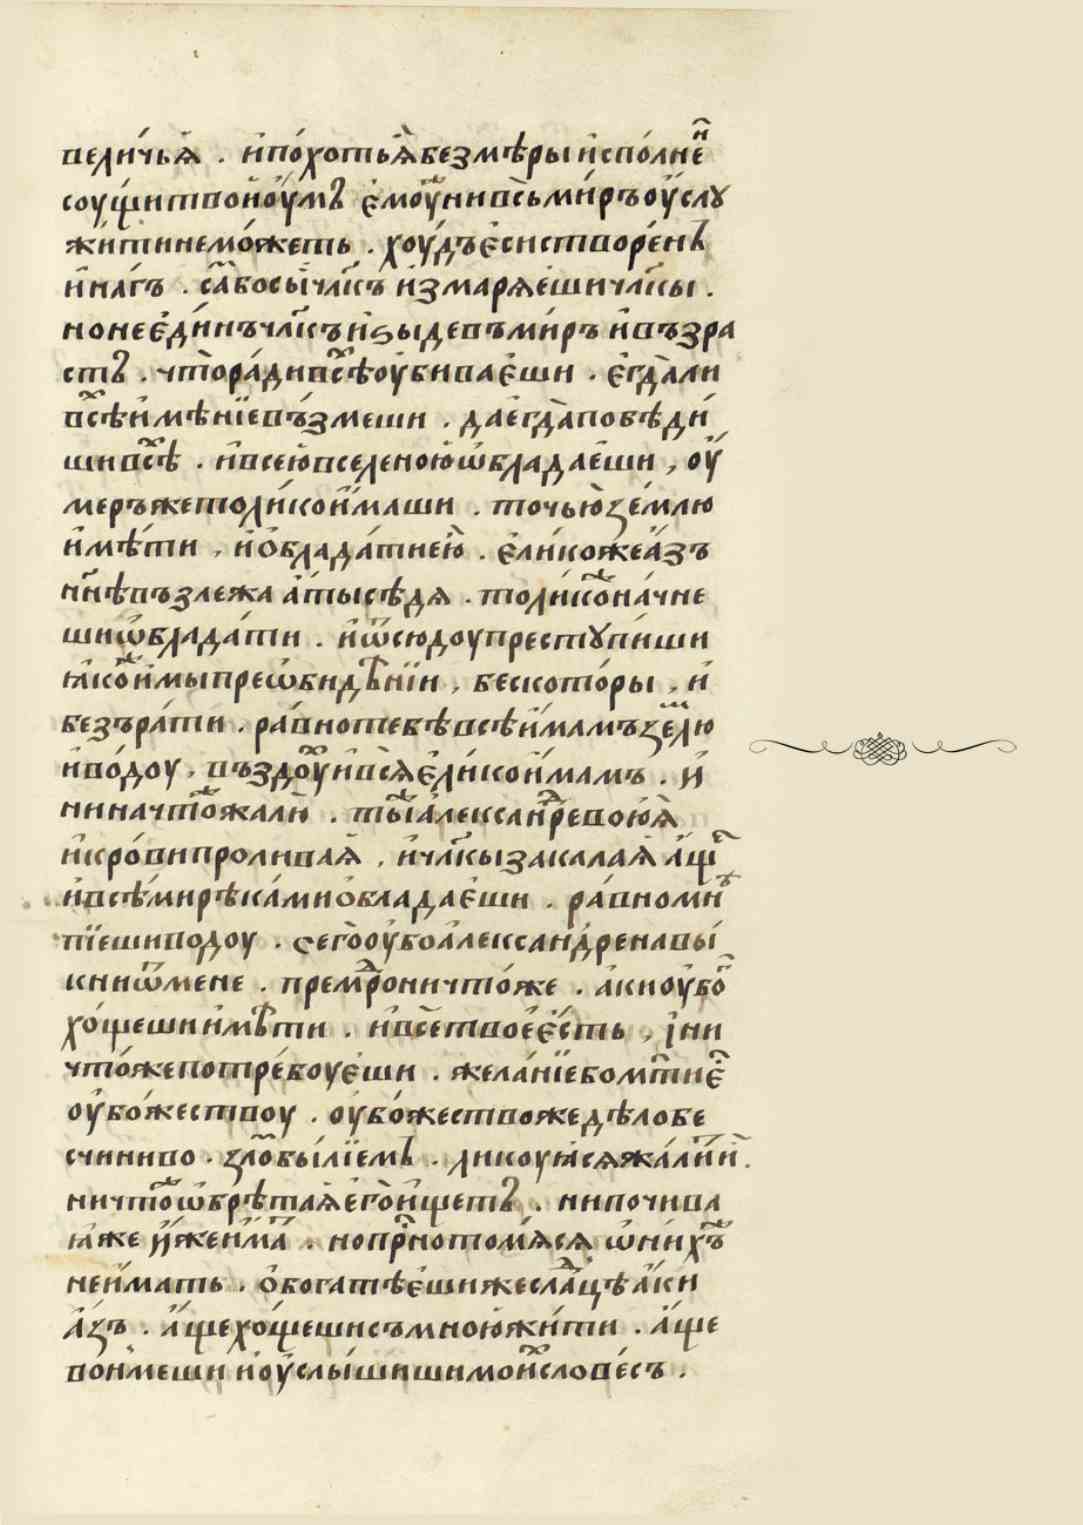 вели́чьꙗ . и҆по́хотьꙗ҆безмѣры и҆спо́лне҇н
соу́щитвои҆оу҆́мъ є҆моу҆нивсь̀ми́ръоу҆слꙋ
жи́тинемо́жеть . хоу́дъєсистворе́нъ
и҆на́гъ . са҇мбосы̀чл҃къ и҆змарѧе́шичл҃кы .
ноне є҆ди́нъчл҃къи҆ꙁыдевъми́ръ и҆въꙁра
стъ . что̀ра́дивсѣ҇хоу҆бива́еши . є҆гда̀ли
всѣ҇хи҆мѣ́нїевъ́ꙁмеши . дае҆гда̀повѣди́
шивсѣ҇х . и҆всею̀вселеною̀ѡ҆блада́еши , оу҆́
мерьжетоли́кои҆́маши . точью̀ꙁе́млю
и҆мѣ́ти , и҆ѻ҆блада́тиею̀ . є҆ли́кожеа҆́ꙁъ
нн҃ѣвъꙁлежа а҆́тысѣдѧ . толи́ко҇жна́чне
шиѡ҆блада́ти . и҆ѿсю́доупрестꙋпи́ши
ꙗ҆ко҇жи҆мыпреѡ҆би́дѣнїи , беското́ры , и҆
беꙁъра́ти . ра́внотебѣвсѣи҆́мамъꙁе҇млю
и҆во́доу , въꙁдоу҇хи҆всѧ̀є҆ли́кои҆́мамъ . и҆
нинач̾то҇жжалю̀ . ты҇жа҆лекса́н҇древою́ꙗ
и҆кро́випролива́ꙗ , и҆чл҃кыꙁакала́ꙗ а҆́щ҇е
и҆всѣ́мирѣка́миѻ҆блада́еши . ра́вноми҇х
пїешиво́доу . сего̀оу҆боа҆лекса́ндренавы́
книѿмене . прем҃дрониⷱ҇то́же . а҆киоу҆бо҇г
хо́щешиимѣ́ти . и҆всѐтвое҆є҆́сть , і҆ни
что́жепотре́боуеши . жела́нїебом҃тиє҇с
оу҆бо́жествоу . оу҆бо́жествожедѣлобе
счиниво . ꙁло҇мбы́лїемъ . ликоуꙗ̀сѧжа́лїи҇н
ничто҇жѡ҆брѣта́ꙗего̀и҆́щетъ . нипочива
ꙗ҆же и҆́жеи҆́ма҇т . нопр҇снотомѧ́сѧ ѡ҆ни́х҇ъ
неи҆́мать . ѻ҆богатѣ́ешижесла҇дцѣа҆́ки
а҆́ꙁъ . а҆́щехо́щешисъмною̀жи́ти . а҆́ще
вои҆́меши и҆оу҆слы́шишимои҇хслове́съ .